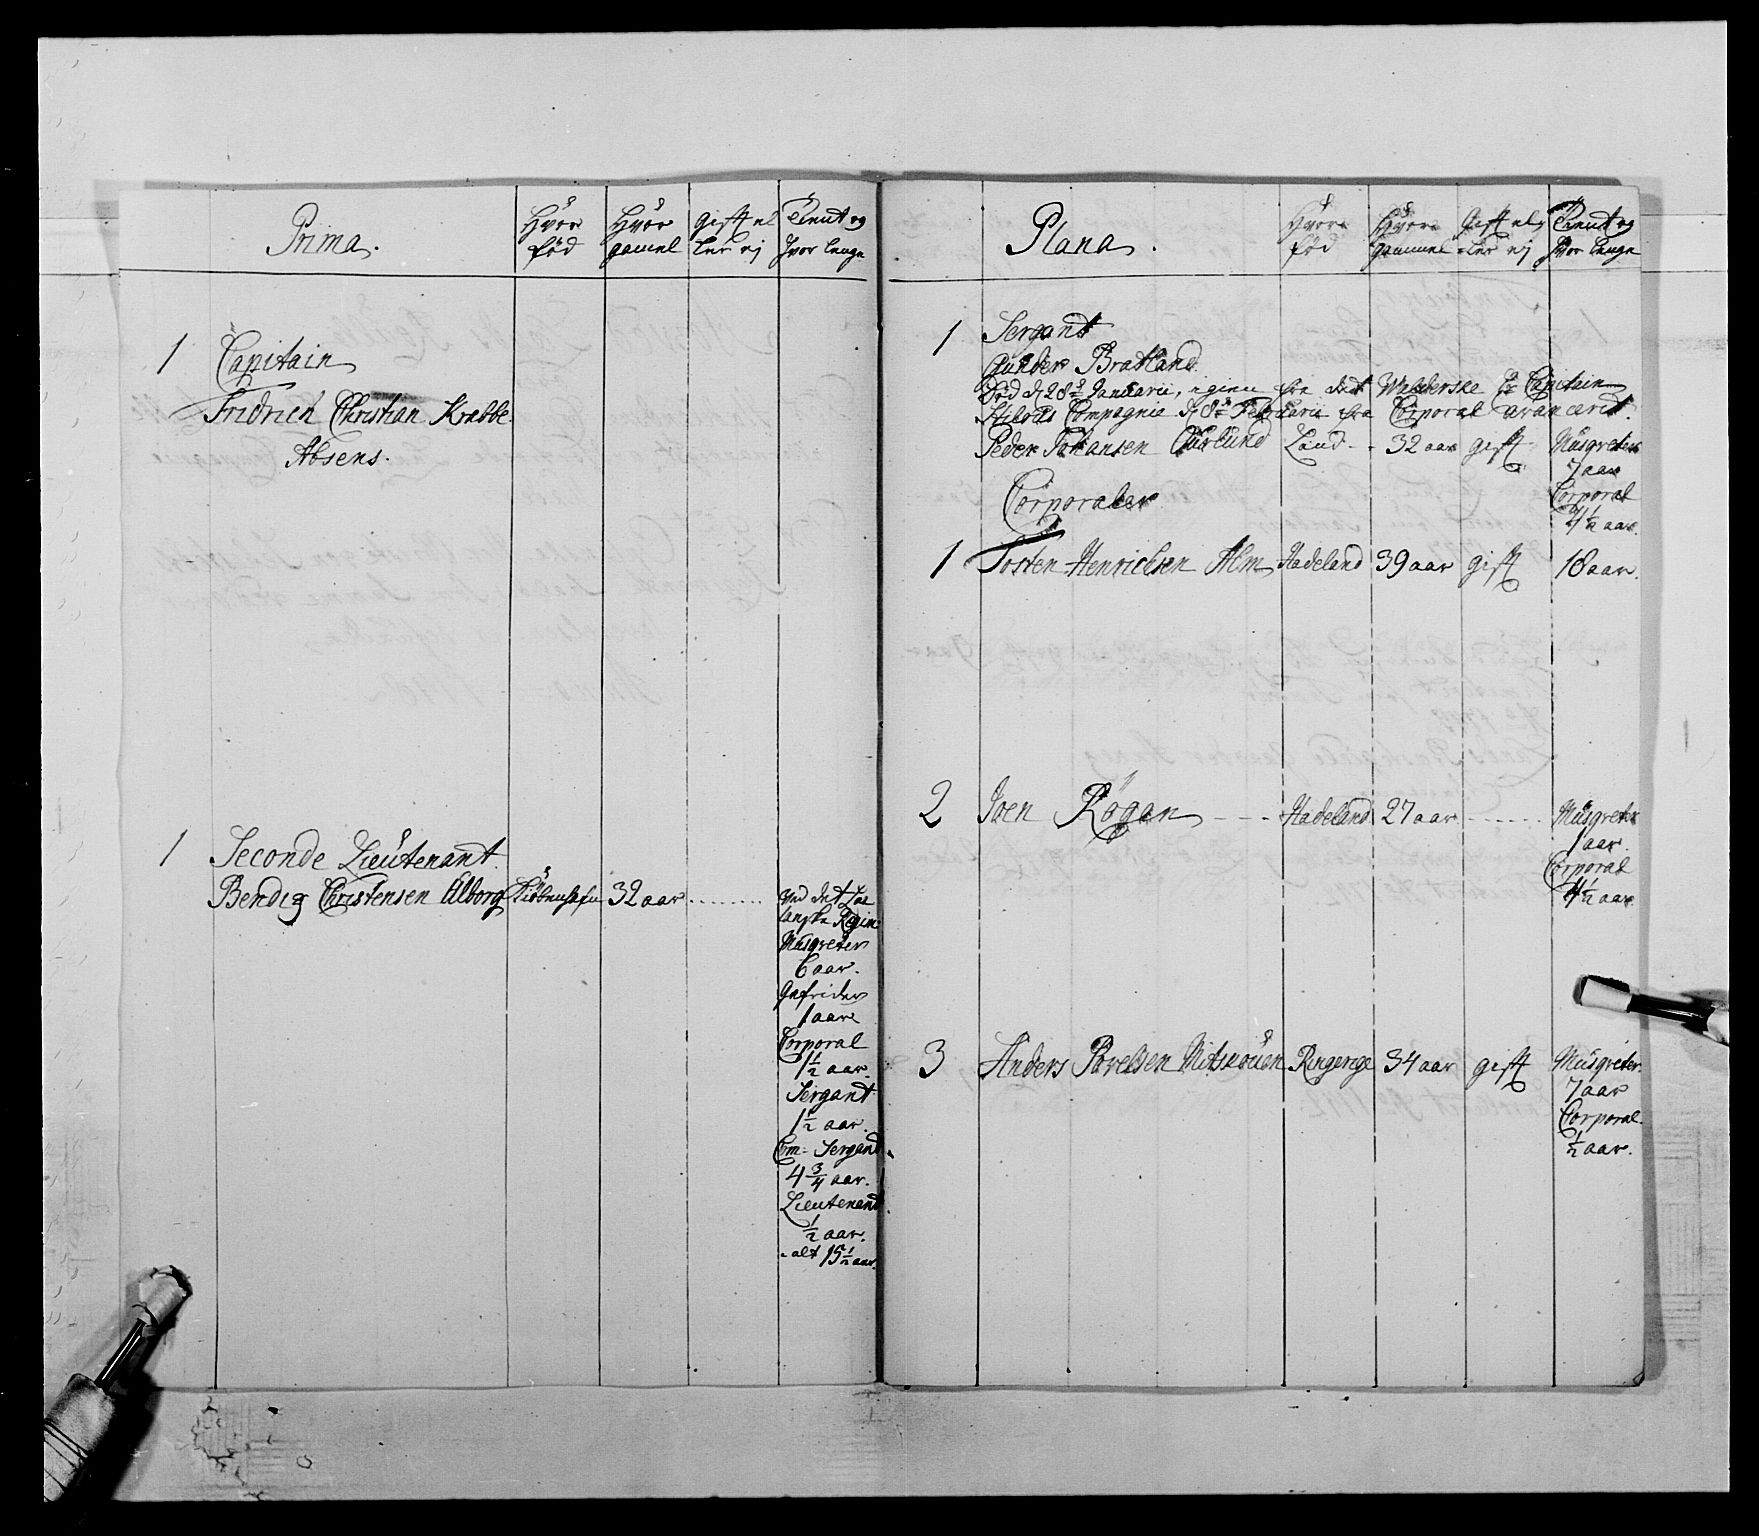 Prima.
Hvor
fød
Hvor
gamel
Gift el
ler ej
Tient og
hvor lenge
1
Capitain
Fridrich Christian Krabbe.
Absens.
1
Seconde Lieutenant
Bendig Christensen Alborg Kiöbenhafn 32 aar
ved det
Regim:
Musqveter
6 aar.
Gefrider
1 aar
Corporal
1½ aar.
Sergant
1½ aar.
Com: Sergand
4¾ aar.
Lieutenand
½ aar.
-alt 15½ aar.
Plana.
Hvor
fød
Hvor
gammel
Gift el
ler ej
Tient og
hvor lenge
1 Sergant
Gunder Bratland
Død d 28de Januarii, igien fra det Walderske Capitain
Compagnie d 8de Februarii fra Corporal avancerit.
Peder Johansen Land - 32 aar gift Musqveter
7 aar
Corporal
4½ aar.
Corporaler
1 Tosten Henrichsen Alm Hadeland 39 aar gift 18 aar.
2 Joen Røgan - - - Hadeland 27 aar Musqveter
1 aar.
Corporal
4½ aar.
3 Anders Povelsen Ringerige 34 aar gift Musqveter
7 aar
Corporal.
½ aar.